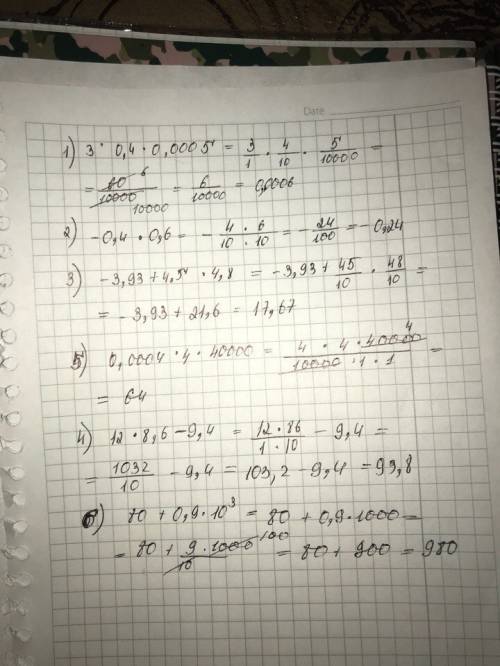 Date
1) 3 · 0,4 · 0,0005 = 3/1 · 4/10 · 5/10000 =
= 60/100000 = 6/10000 = 0,0006
2) -0,4 · 0,6 = - 4 · 6/10 · 10 = - 24/100 = -0,24
3) -3,93 + 4,5 · 4,8 = -3,93 + 45/10 · 48/10 =
= -3,93 + 21,6 = 17,67
5) 0,0004 · 4 · 40000 = 4 · 4 · 40000/10000 · 1 · 1 =
= 64
4) 12 · 8,6 - 9,4 = 12 · 86/1 · 10 - 9,4 =
= 1032/10 - 9,4 = 103,2 - 9,4 = 93,8
6) 80 + 0,9 · 10³ = 80 + 0,9 · 1000 =
= 80 + 9 · 1000/10 100 = 80 + 900 = 980